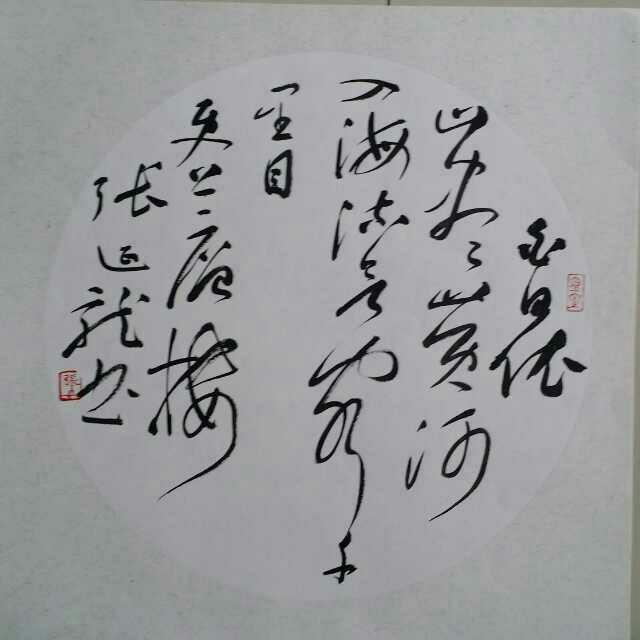 白日依
山尽黄河
入海流欲穷千
里目
更上一层楼
张延龍书